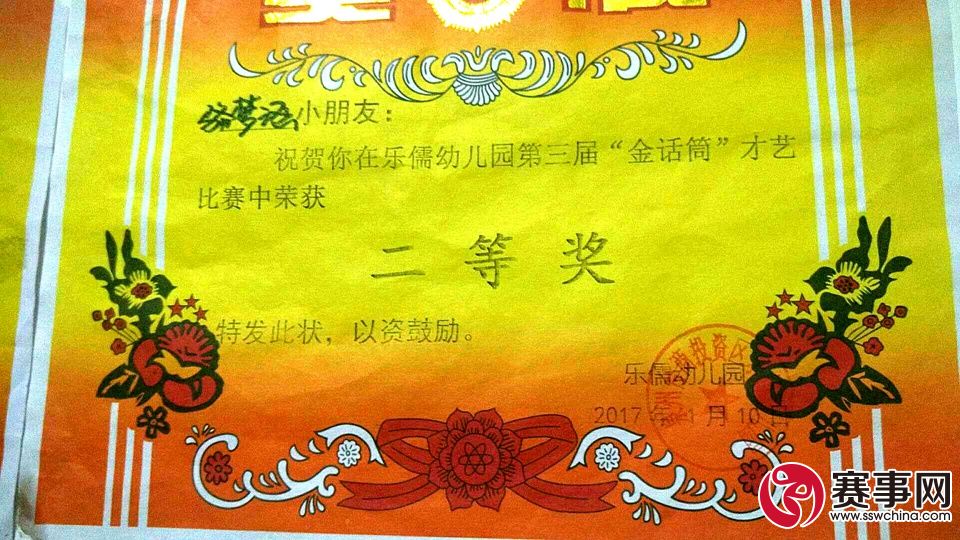 小朋友：
祝贺你在乐儒幼儿园第三届“金话筒”才艺
比赛中荣获
二等奖
特发此状，以资鼓励。
乐儒幼儿园
2017年11月10日
赛事网
www.sswchina.com